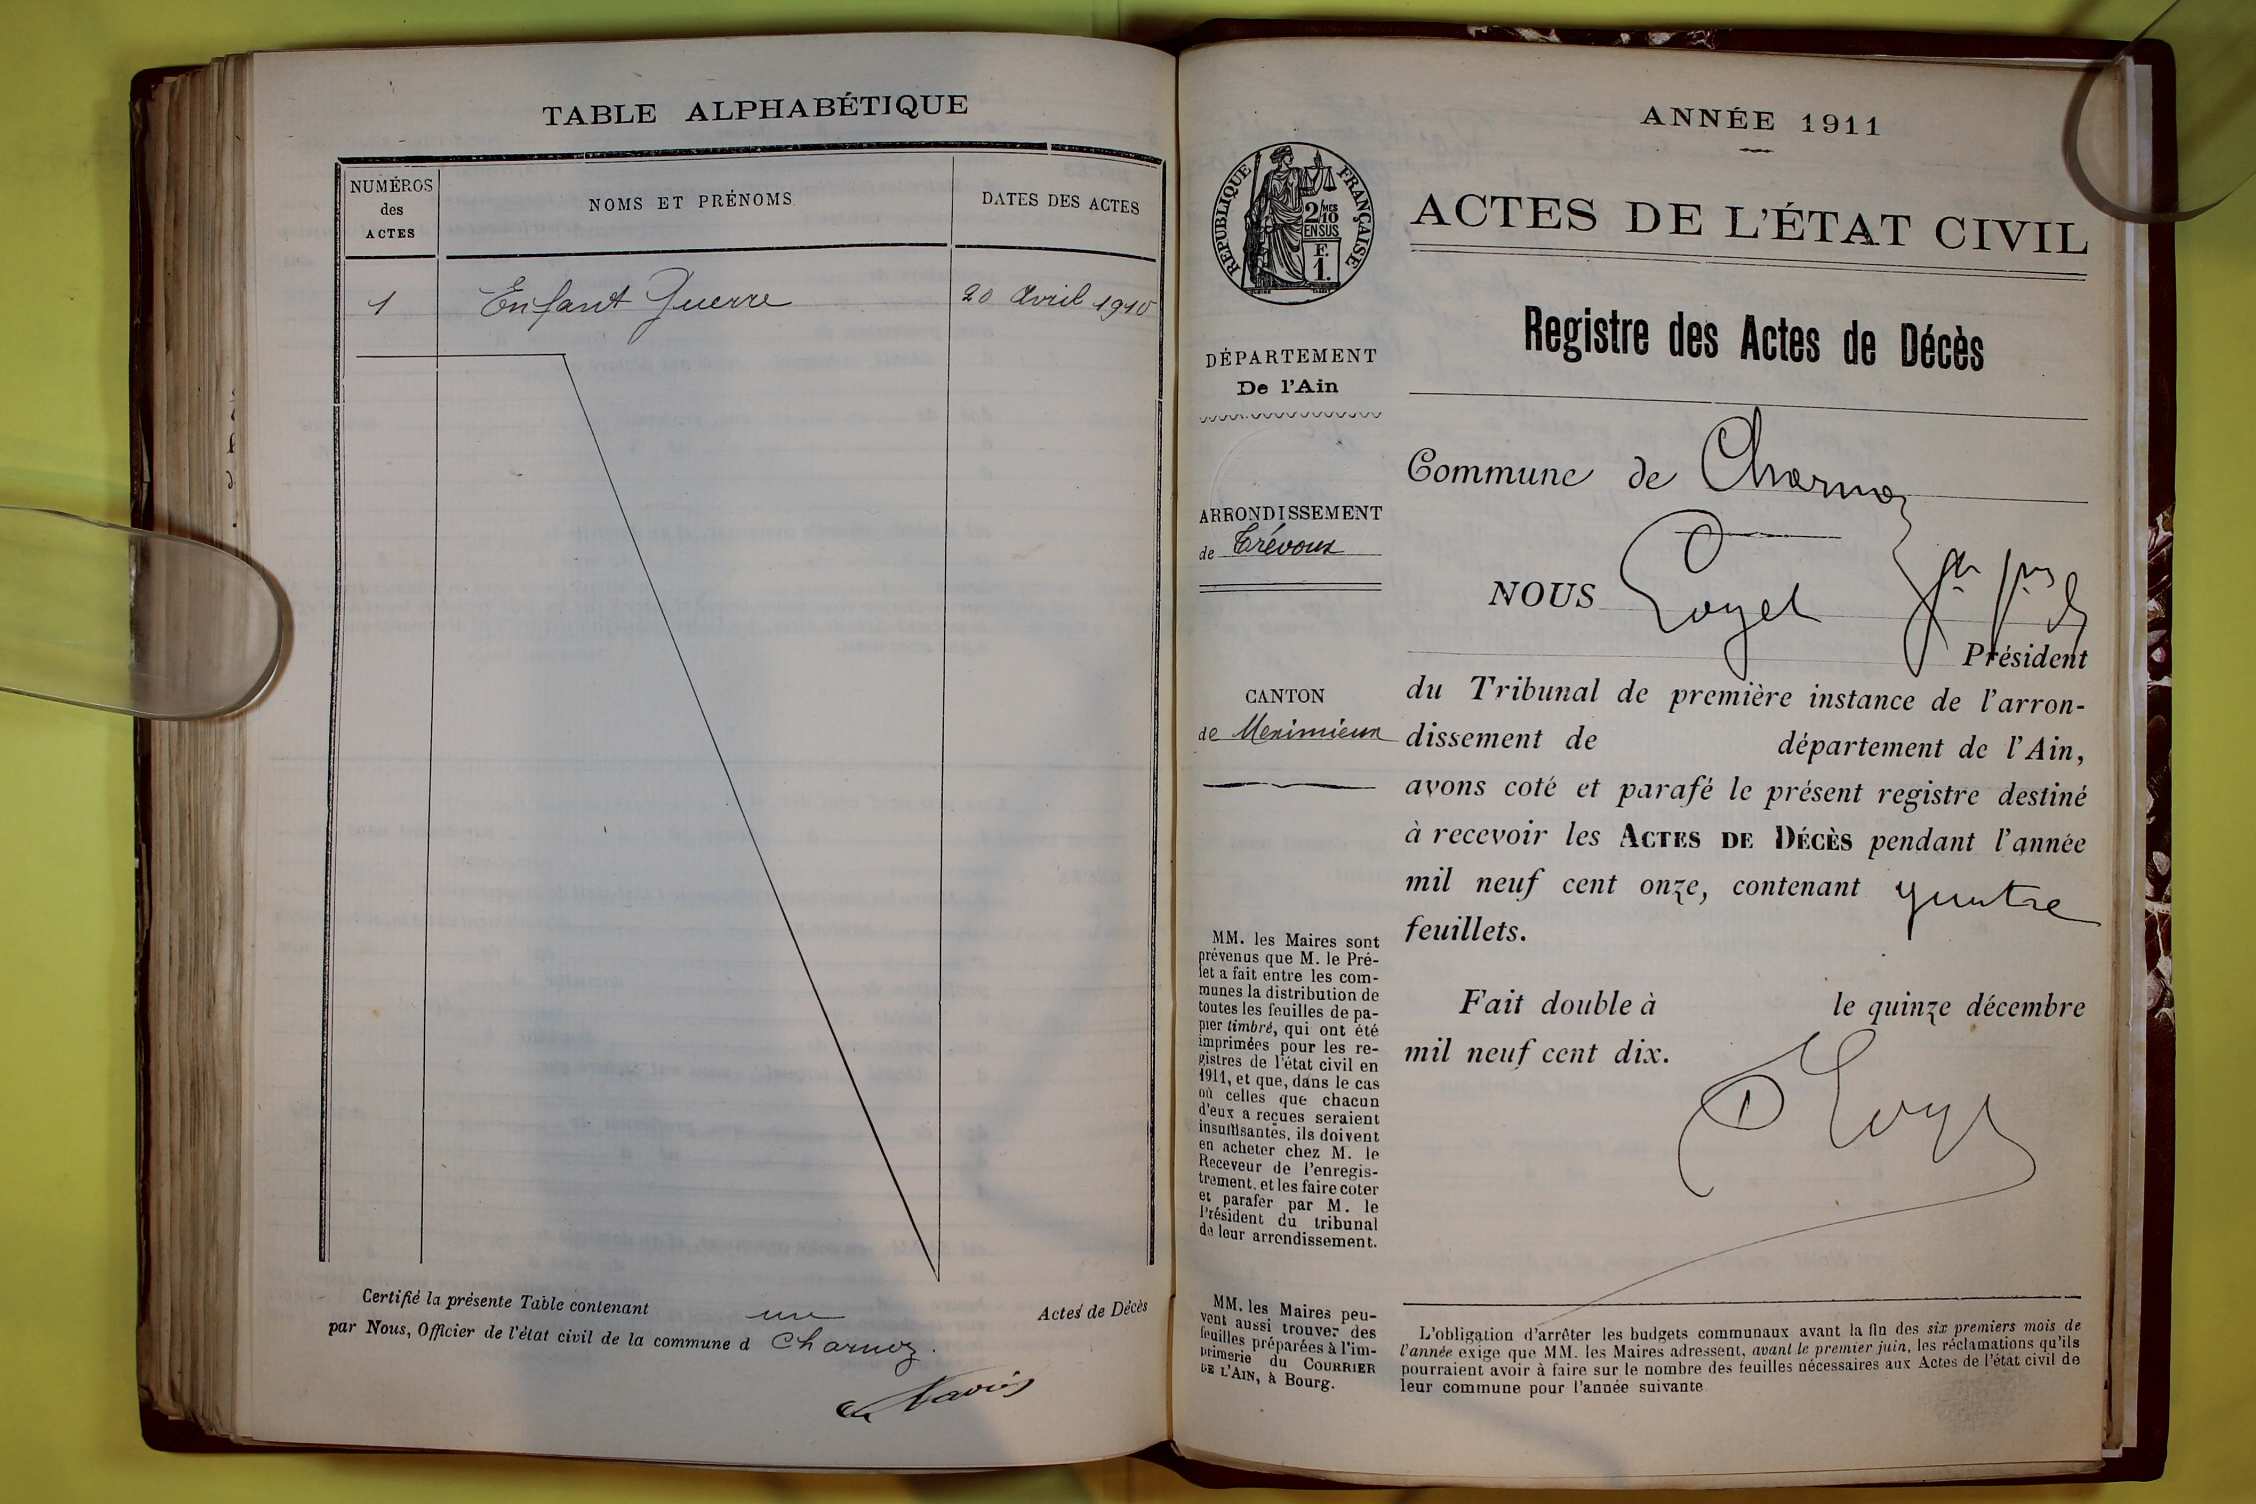 TABLE ALPHABÉTIQUE
NUMÉROS
des
ACTES
NOMS ET PRÉNOMS
DATES DES ACTES
1 Enfant Guerre 20 Avril 1910
Certifié la présente Table contenant un Actes de Décès
par Nous, Officier de l'état civil de la commune d Charnoz.
ANNÉE 1911
RÉPUBLIQUE FRANÇAISE
2/10 MES
EN SUS
F.
1.
ACTES DE L'ÉTAT CIVIL
Registre des Actes de Décès
DÉPARTEMENT
De l'Ain
ARRONDISSEMENT
de Trévoux
CANTON
de Meximieux
MM. les Maires sont
prévenus que M. le Pré-
fet a fait entre les com-
munes la distribution de
toutes les feuilles de pa-
pier timbré, qui ont été
imprimées pour les re-
gistres de l'état civil en
1911, et que, dans le cas
où celles que chacun
d'eux a reçues seraient
insuffisantes, ils doivent
en acheter chez M. le
Receveur de l'enregis-
trement, et les faire coter
et parafer par M. le
Président du tribunal
de leur arrondissement.
MM. les Maires peu-
vent aussi trouver des
feuilles préparées à l'im-
primerie du COURRIER
DE L'AIN, à Bourg.
Commune de Charnoz
NOUS Loyel
Président
du Tribunal de première instance de l'arron-
dissement de département de l'Ain,
avons coté et parafé le présent registre destiné
à recevoir les ACTES DE DÉCÈS pendant l'année
mil neuf cent onze, contenant quatre
feuillets.
Fait double à le quinze décembre
mil neuf cent dix.
L'obligation d'arrêter les budgets communaux avant la fin des six premiers mois de
l'année exige que MM. les Maires adressent, avant le premier juin, les réclamations qu'ils
pourraient avoir à faire sur le nombre des feuilles nécessaires aux Actes de l'état civil de
leur commune pour l'année suivante